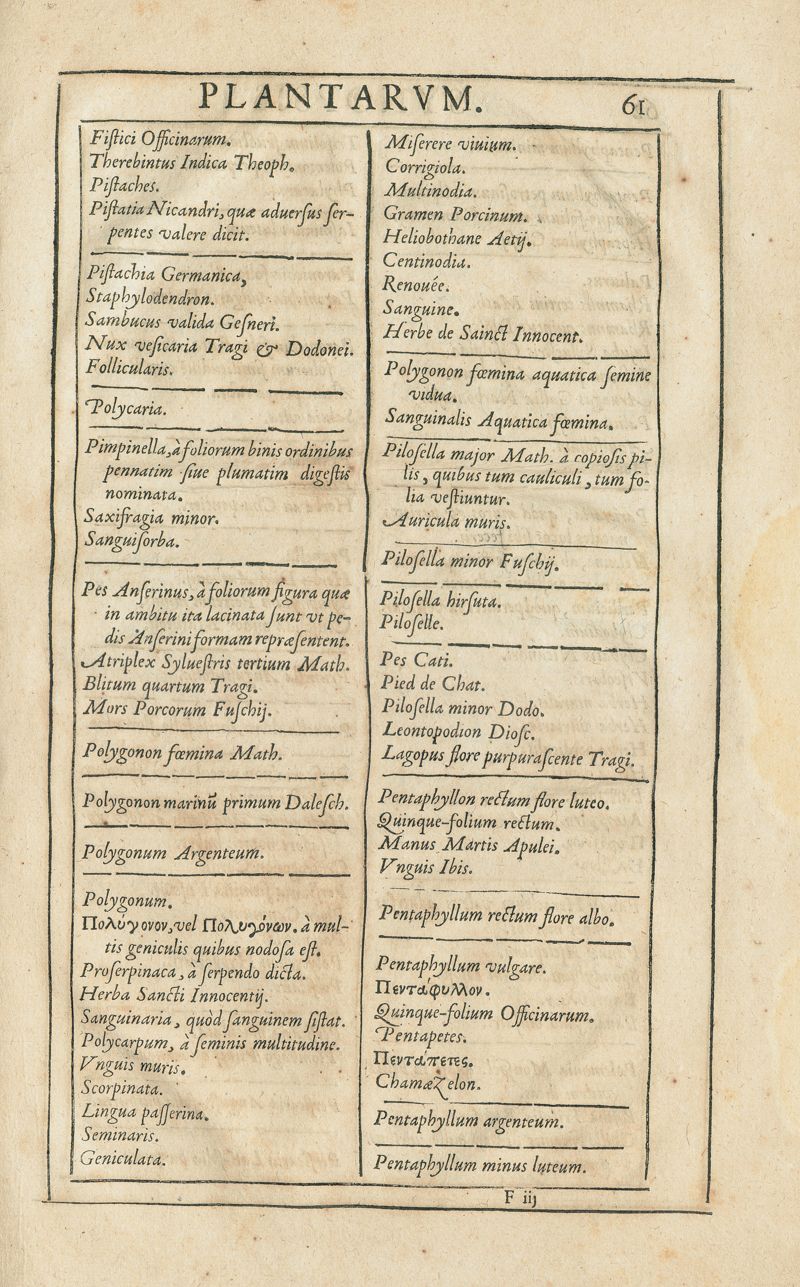 PLANTARVM. 61
Fiſtici Officinarum.
Therebintus Indica Theoph.
Piſtaches.
Piſtatia Nicandri, quæ aduerſus ſer-
pentes valere dicit.
Piſtachia Germanica,
Staphylodendron.
Sambucus valida Geſneri.
Nux veſicaria Tragi & Dodonei.
Follicularis.
Polycaria.
Pimpinella, à foliorum binis ordinibus
pennatim ſiue plumatim digeſtis
nominata.
Saxifragia minor.
Sanguiſorba.
Pes Anſerinus, à foliorum figura quæ
in ambitu ita lacinata ſunt vt pe-
dis Anſerini formam repræſentent.
Atriplex Sylueſtris tertium Math.
Blitum quartum Tragi.
Mors Porcorum Fuſchij.
Polygonon fœmina Math.
Polygonon marinū primum Daleſch.
Polygonum Argenteum.
Polygonum.
Πολύγονον, vel Πολυγόνων. à mul-
tis geniculis quibus nodoſa eſt.
Proſerpinaca, à ſerpendo dicta.
Herba Sancti Innocentij.
Sanguinaria, quòd ſanguinem ſiſtat.
Polycarpum, à ſeminis multitudine.
Vnguis muris.
Scorpinata.
Lingua paſſerina.
Seminaris.
Geniculata.
Miſerere viuium.
Corrigiola.
Multinodia.
Gramen Porcinum.
Heliobothane Aetij.
Centinodia.
Renouée.
Sanguine.
Herbe de Sainct Innocent.
Polygonon fœmina aquatica ſemine
vidua.
Sanguinalis Aquatica fœmina.
Piloſella major Math. à copioſis pi-
lis, quibus tum cauliculi, tum fo-
lia veſtiuntur.
Auricula muris.
Piloſella minor Fuſchij.
Piloſella hirſuta.
Piloſelle.
Pes Cati.
Pied de Chat.
Piloſella minor Dodo.
Leontopodion Dioſc.
Lagopus flore purpuraſcente Tragi.
Pentaphyllon rectum flore luteo.
Quinque-folium rectum.
Manus Martis Apulei.
Vnguis Ibis.
Pentaphyllum rectum flore albo.
Pentaphyllum vulgare.
Πεντάφυλλον.
Quinque-folium Officinarum.
Pentapetes.
Πεντάπετες.
Chamæzelon.
Pentaphyllum argenteum.
Pentaphyllum minus luteum.
F iij